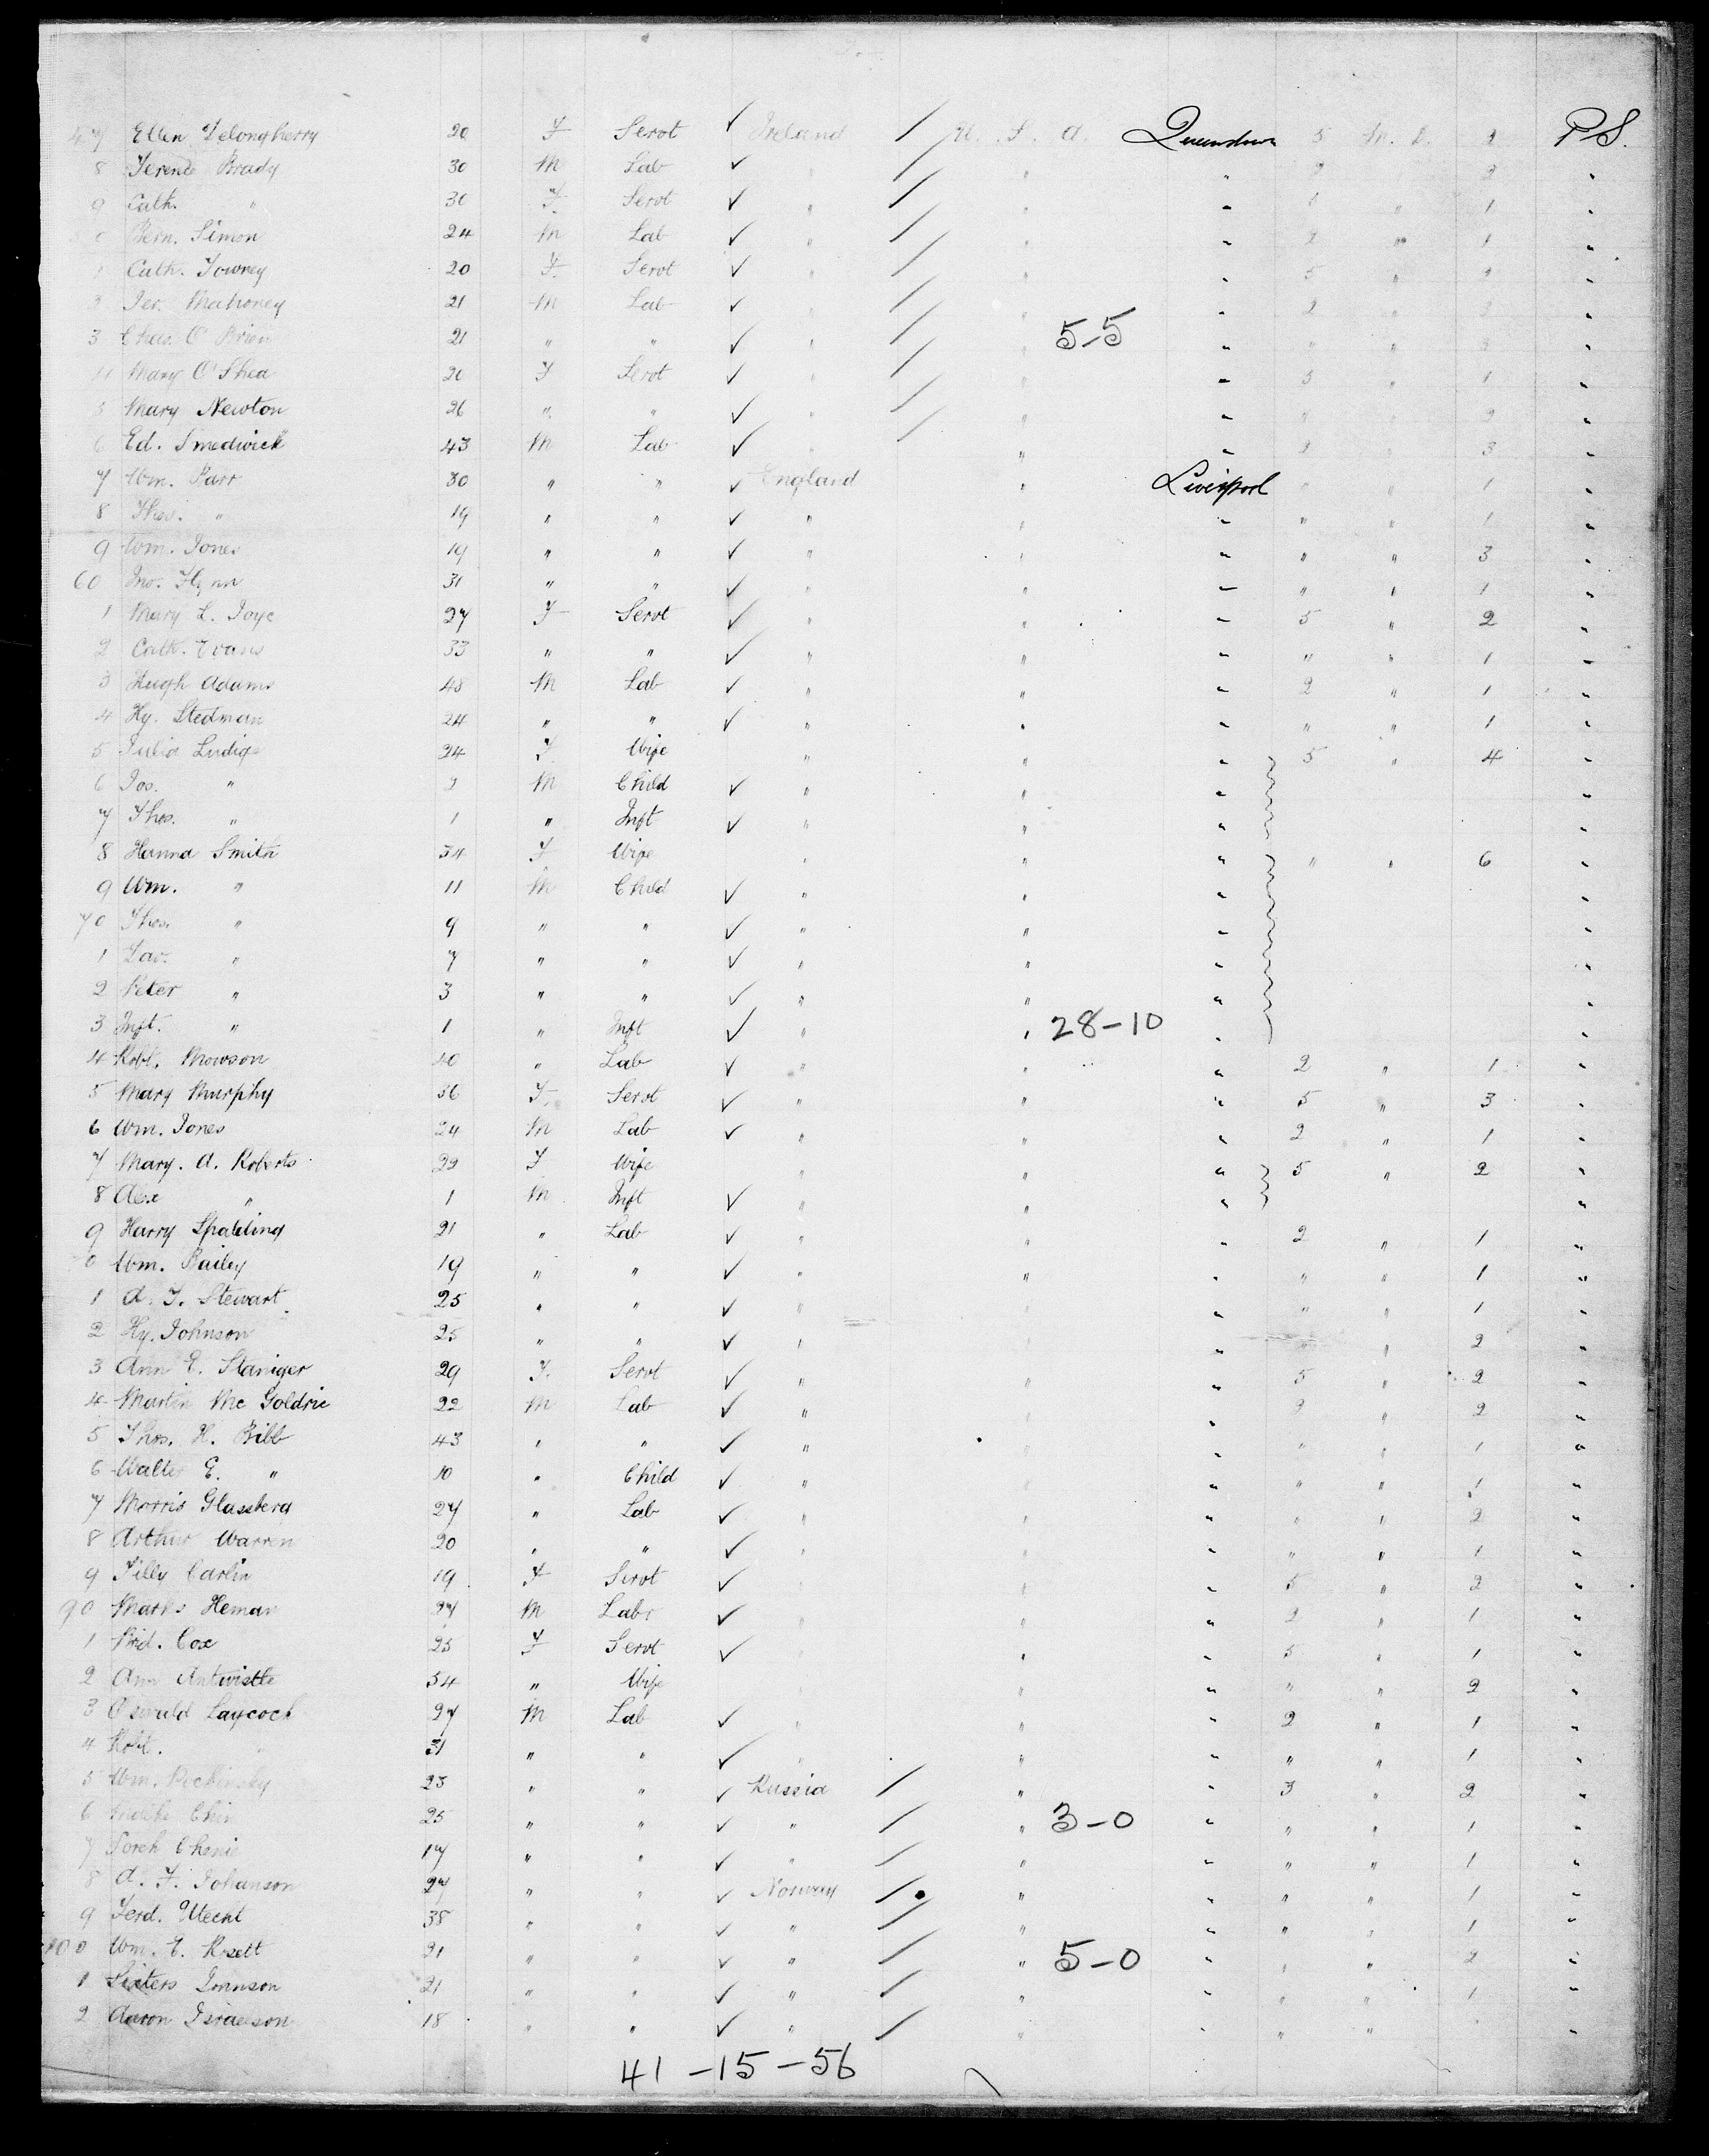 47 Ellen Delongherry 20 F Servt ✓ Ireland / U. S. A. Queenstown 5 St. L. 2 P S.
8 Terence Brady 30 M Lab ✓ " / " " 2 2 "
9 Cath. " 30 F Servt ✓ " / " " 5 " 1 "
50 Bern. Simon 24 M Lab ✓ " / " " 2 " 1 "
1 Cath. Towney 20 F Servt ✓ " / " " 5 " 2 "
3 Jer. Mahoney 21 M Lab ✓ " / " " 2 " "
3 Chas. O'Brien 21 " " ✓ " / " 5-5 " " " "
4 Mary O'Shea 20 F Servt ✓ " / " " 5 " 1 "
5 Mary Newton 26 " " ✓ " / " " " " 2 "
6 Ed. Smedwick 43 M Lab ✓ / " " 2 " 3 "
7 Wm. Parr 30 " " ✓ England " Liverpool " " 1 "
8 Thos. " 19 " " ✓ " " " " " 1 "
9 Wm. Jones 19 " " ✓ " " " " " 3 "
60 Jno. Flynn 31 " " ✓ " " " " " 1 "
1 Mary E. Joyce 27 F Servt ✓ " " " 5 " 2 "
2 Cath. Evans 33 " " ✓ " " " " " 1 "
3 Hugh Adams 48 M Lab ✓ " " " 2 " 1 "
4 Hy. Stedman 24 " " ✓ " " " " " 1 "
5 Julia Ludige 24 F Wife " " " 5 " 4 "
6 Jos. " M Child ✓ " " " "
7 Thos. " 1 " Inft ✓ " " " "
8 Hanna Smith 34 F Wife " " " " " 6 "
9 Wm. " 11 M Child ✓ " " " "
70 Thos. " 9 " " ✓ " " " "
1 Lav. " 7 " " ✓ " " " "
2 Peter " 3 " " ✓ " " " "
3 Inft. " 1 " Inft ✓ " " 28-10 " "
4 Robt. Mowson 40 " Lab ✓ " " " 2 " 1 "
5 Mary Murphy 36 F Servt ✓ " " " 5 " 3 "
6 Wm. Jones 24 M Lab ✓ " " " 2 " 1 "
7 Mary. A. Roberts 29 F Wife " " " 5 " 2 "
8 Alex " 1 M Inft ✓ " " " "
9 Harry Spalding 21 " Lab ✓ " " " 2 " 1 "
0 Wm. Bailey 19 " " ✓ " " " " " 1 "
1 A. T. Stewart 25 " " ✓ " " " " " 1 "
2 Hy. Johnson 25 " " ✓ " " " " " 2 "
3 Ann E. Staniger 29 F. Servt ✓ " " " 5 " 2 "
4 Martin Mc Goldric 22 M Lab ✓ " " " 2 " 2 "
5 Thos. H. Bibb 43 " " ✓ " " " " " 1 "
6 Walter E. " 10 " Child ✓ " " " " " 1 "
7 Morris Glassberg 27 " Lab ✓ " " " " " 2 "
8 Arthur Warren 20 " " ✓ " " " " " 1 "
9 Tilly Carlin 19 F Servt ✓ " " 5 " 2 "
90 Marks Heman 27 M Labr ✓ " " 2 " 1 "
1 Brid. Cox 25 F Servt ✓ " " 5 " 1 "
2 Ann Antwistle 54 " Wife " " " " " 2 "
3 Oswald Laycock 27 M Lab ✓ " " " 2 " 1 "
4 Robt. " 31 " " ✓ " " " " " 1 "
5 Wm. 23 " " ✓ Russia / " " 3 " 2 "
6 25 " " ✓ " / " 3-0 " " " 1 "
7 17 " " ✓ " / " " " " 1 "
8 A. F. Johanson 27 " " ✓ Norway / " " " " 1 "
9 Ferd. Utecht 38 " " ✓ " / " " " " 1 "
100 Wm. E. 21 " " ✓ " / " 5-0 " " " 2 "
1 Johnson 21 " " ✓ " / " " " " 1 "
2 Aaron Israelson 18 " " ✓ " / " " " " "
41 - 15 - 56